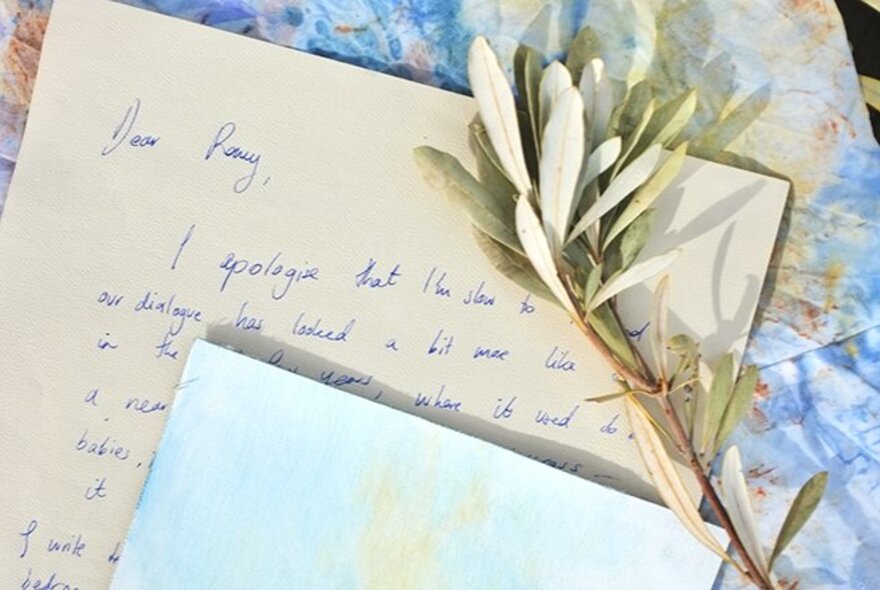 Dear Romy,
I apologise that I'm slow to
our dialogue has looked a bit more like
in the few years, where it used to
a near
babies,
it
I write